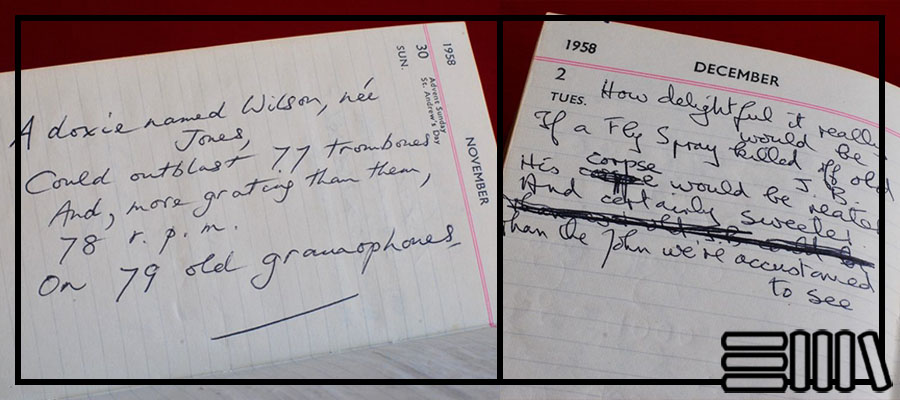 1958
30
SUN.
Advent Sunday
St. Andrew's Day
NOVEMBER
A doxie named Wilson, née
Jones,
Could outblast 77 trombones
And, more grating than them,
78 r. p. m.
On 79 old gramaophones
1958
DECEMBER
2
TUES.
How delightful it really
would be
If a Fly Spray killed off old
J. B.
His corpse would be neater
And certainly sweeter
than the John we're accustomed
to see